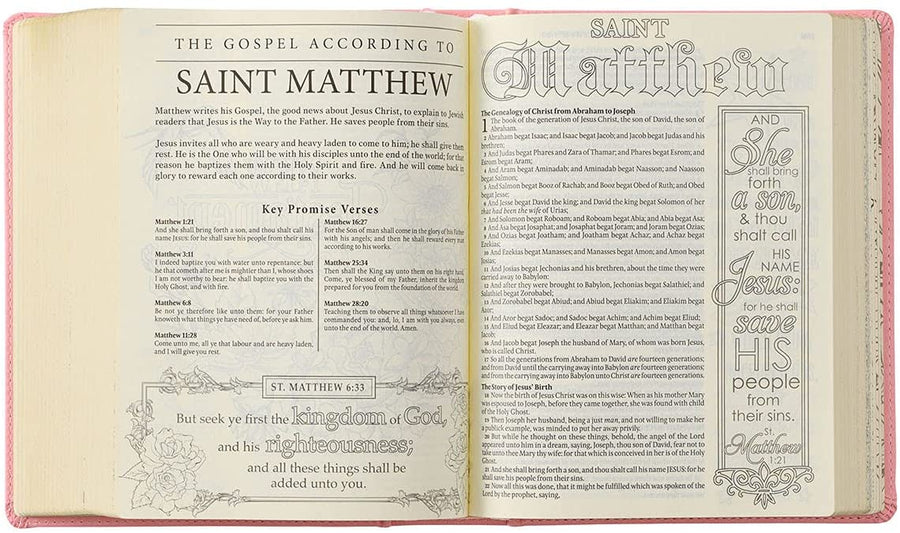 THE GOSPEL ACCORDING TO
SAINT MATTHEW
Matthew writes his Gospel, the good news about Jesus Christ, to explain to Jewish
readers that Jesus is the Way to the Father. He saves people from their sins.
Jesus invites all who are weary and heavy laden to come to him; he shall give them
rest. He is the One who will be with his disciples unto the end of the world; for that
reason he baptizes them with the Holy Spirit and fire. And he will come back in
glory to reward each one according to their works.
Key Promise Verses
Matthew 1:21
And she shall bring forth a son, and thou shalt call his
name JESUS: for he shall save his people from their sins.
Matthew 3:11
I indeed baptize you with water unto repentance: but
he that cometh after me is mightier than I, whose shoes
I am not worthy to bear: he shall baptize you with the
Holy Ghost, and with fire.
Matthew 6:8
Be not ye therefore like unto them: for your Father
knoweth what things ye have need of, before ye ask him.
Matthew 11:28
Come unto me, all ye that labour and are heavy laden,
and I will give you rest.
Matthew 16:27
For the Son of man shall come in the glory of his Father
with his angels; and then he shall reward every man
according to his works.
Matthew 25:34
Then shall the King say unto them on his right hand,
Come, ye blessed of my Father, inherit the kingdom
prepared for you from the foundation of the world.
Matthew 28:20
Teaching them to observe all things whatsoever I have
commanded you: and, lo, I am with you alway, even
unto the end of the world. Amen.
ST. MATTHEW 6:33
But seek ye first the kingdom of God,
and his righteousness;
and all these things shall be
added unto you.
SAINT
Matthew
The Genealogy of Christ from Abraham to Joseph
1 The book of the generation of Jesus Christ, the son of David, the son of
Abraham.
2 Abraham begat Isaac; and Isaac begat Jacob; and Jacob begat Judas and his
brethren;
3 And Judas begat Phares and Zara of Thamar; and Phares begat Esrom; and
Esrom begat Aram;
4 And Aram begat Aminadab; and Aminadab begat Naasson; and Naasson
begat Salmon;
5 And Salmon begat Booz of Rachab; and Booz begat Obed of Ruth; and Obed
begat Jesse;
6 And Jesse begat David the king; and David the king begat Solomon of her
that had been the wife of Urias;
7 And Solomon begat Roboam; and Roboam begat Abia; and Abia begat Asa;
8 And Asa begat Josaphat; and Josaphat begat Joram; and Joram begat Ozias;
9 And Ozias begat Joatham; and Joatham begat Achaz; and Achaz begat
Ezekias;
10 And Ezekias begat Manasses; and Manasses begat Amon; and Amon begat
Josias;
11 And Josias begat Jechonias and his brethren, about the time they were
carried away to Babylon:
12 And after they were brought to Babylon, Jechonias begat Salathiel; and
Salathiel begat Zorobabel;
13 And Zorobabel begat Abiud; and Abiud begat Eliakim; and Eliakim begat
Azor;
14 And Azor begat Sadoc; and Sadoc begat Achim; and Achim begat Eliud;
15 And Eliud begat Eleazar; and Eleazar begat Matthan; and Matthan begat
Jacob;
16 And Jacob begat Joseph the husband of Mary, of whom was born Jesus,
who is called Christ.
17 So all the generations from Abraham to David are fourteen generations;
and from David until the carrying away into Babylon are fourteen generations;
and from the carrying away into Babylon unto Christ are fourteen generations.
The Story of Jesus' Birth
18 Now the birth of Jesus Christ was on this wise: When as his mother Mary
was espoused to Joseph, before they came together, she was found with child
of the Holy Ghost.
19 Then Joseph her husband, being a just man, and not willing to make her
a publick example, was minded to put her away privily.
20 But while he thought on these things, behold, the angel of the Lord
appeared unto him in a dream, saying, Joseph, thou son of David, fear not to
take unto thee Mary thy wife: for that which is conceived in her is of the Holy
Ghost.
21 And she shall bring forth a son, and thou shalt call his name JESUS: for he
shall save his people from their sins.
22 Now all this was done, that it might be fulfilled which was spoken of the
Lord by the prophet, saying,
AND
She
shall bring
forth
a son,
& thou
shalt call
HIS
NAME
Jesus:
for he shall
save
HIS
people
from
their sins.
St.
Matthew
1:21